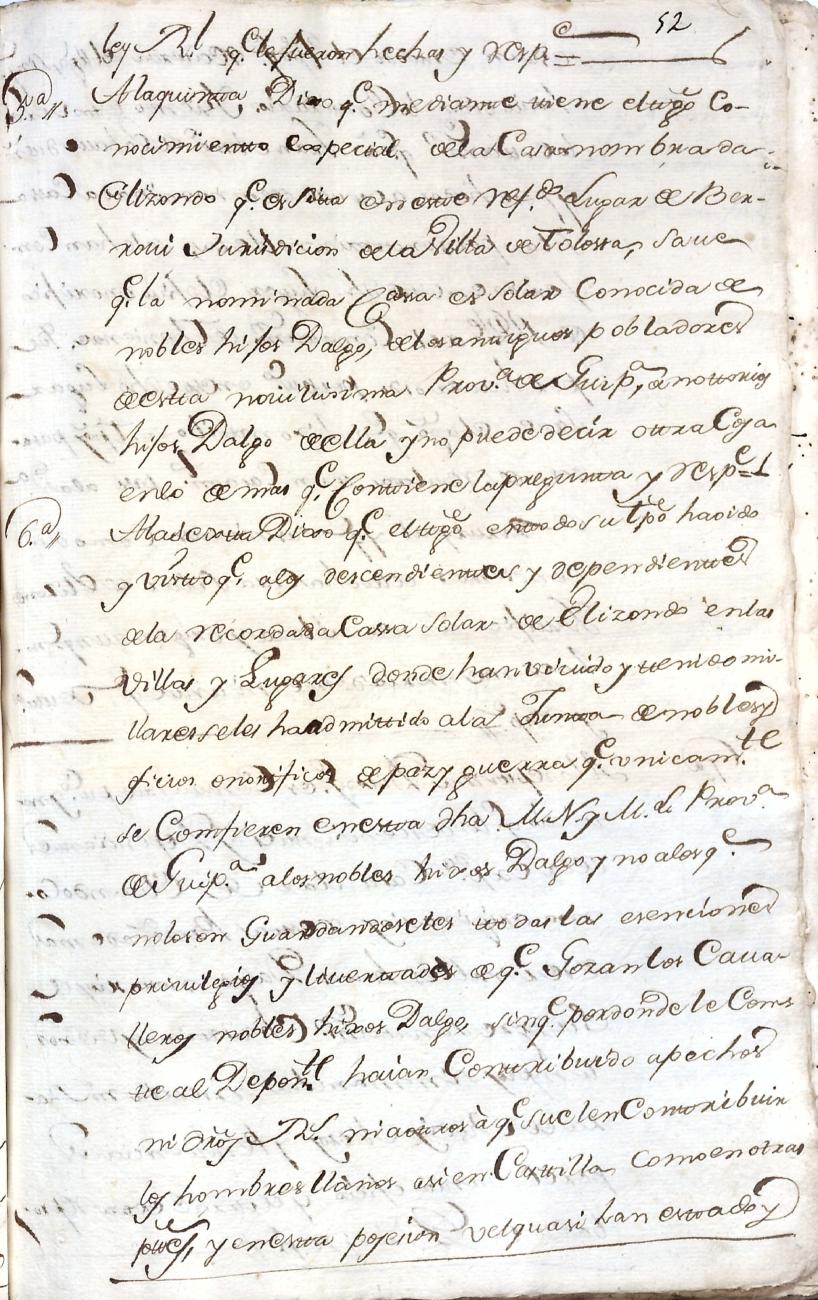 52
ley Rl. qe. le fueron hechas y resp=
5.a
A la quinta Dixo qe. mediante tiene el tgo. Co-
nocimiento especial de la Casa nombrada
Elizondo qe. es sita en este ref.do Lugar de Ber-
rovi Juridicion de la Villa de Tolossa, save
qe. la nominada Casa es solar Conocida de
nobles hijos Dalgo, de los antiguos pobladores
de esta novilisima Prov.a de Guip.a, notorios
hijos Dalgo de ella y no puede decir otra Cosa
en lo demas qe. Contiene la pregunta y resp.e=
6.a
A la sexta Dixo qe. el tgo. en todo su tpo. ha oido
y visto qe. a los descendientes y dependientes
de la recordada Cassa solar de Elizondo en las
villas y Lugares donde han vivido y tenido mi-
llares se les ha admittido a la Junta de nobles y
oficios onorificos de paz y guerra qe. unicam.te
se Confieren en esta dha. M. N. y M. L. Prov.a
de Guip.a a los nobles hixos Dalgo y no a los qe.
no lo son Guardandoseles todas las esenciones
privilegios y livertades de qe. Gozan los Cava-
lleros nobles hixos Dalgo, sin qe. por donde le Cons-
te al Depon.te haian Contribuido a pechos
ni dros. Rs. ni a otros à qe. suelen Contribuir
los hombres llanos asi en Castilla Como en otras
ptes, y en esta posesion velquasi han estado y